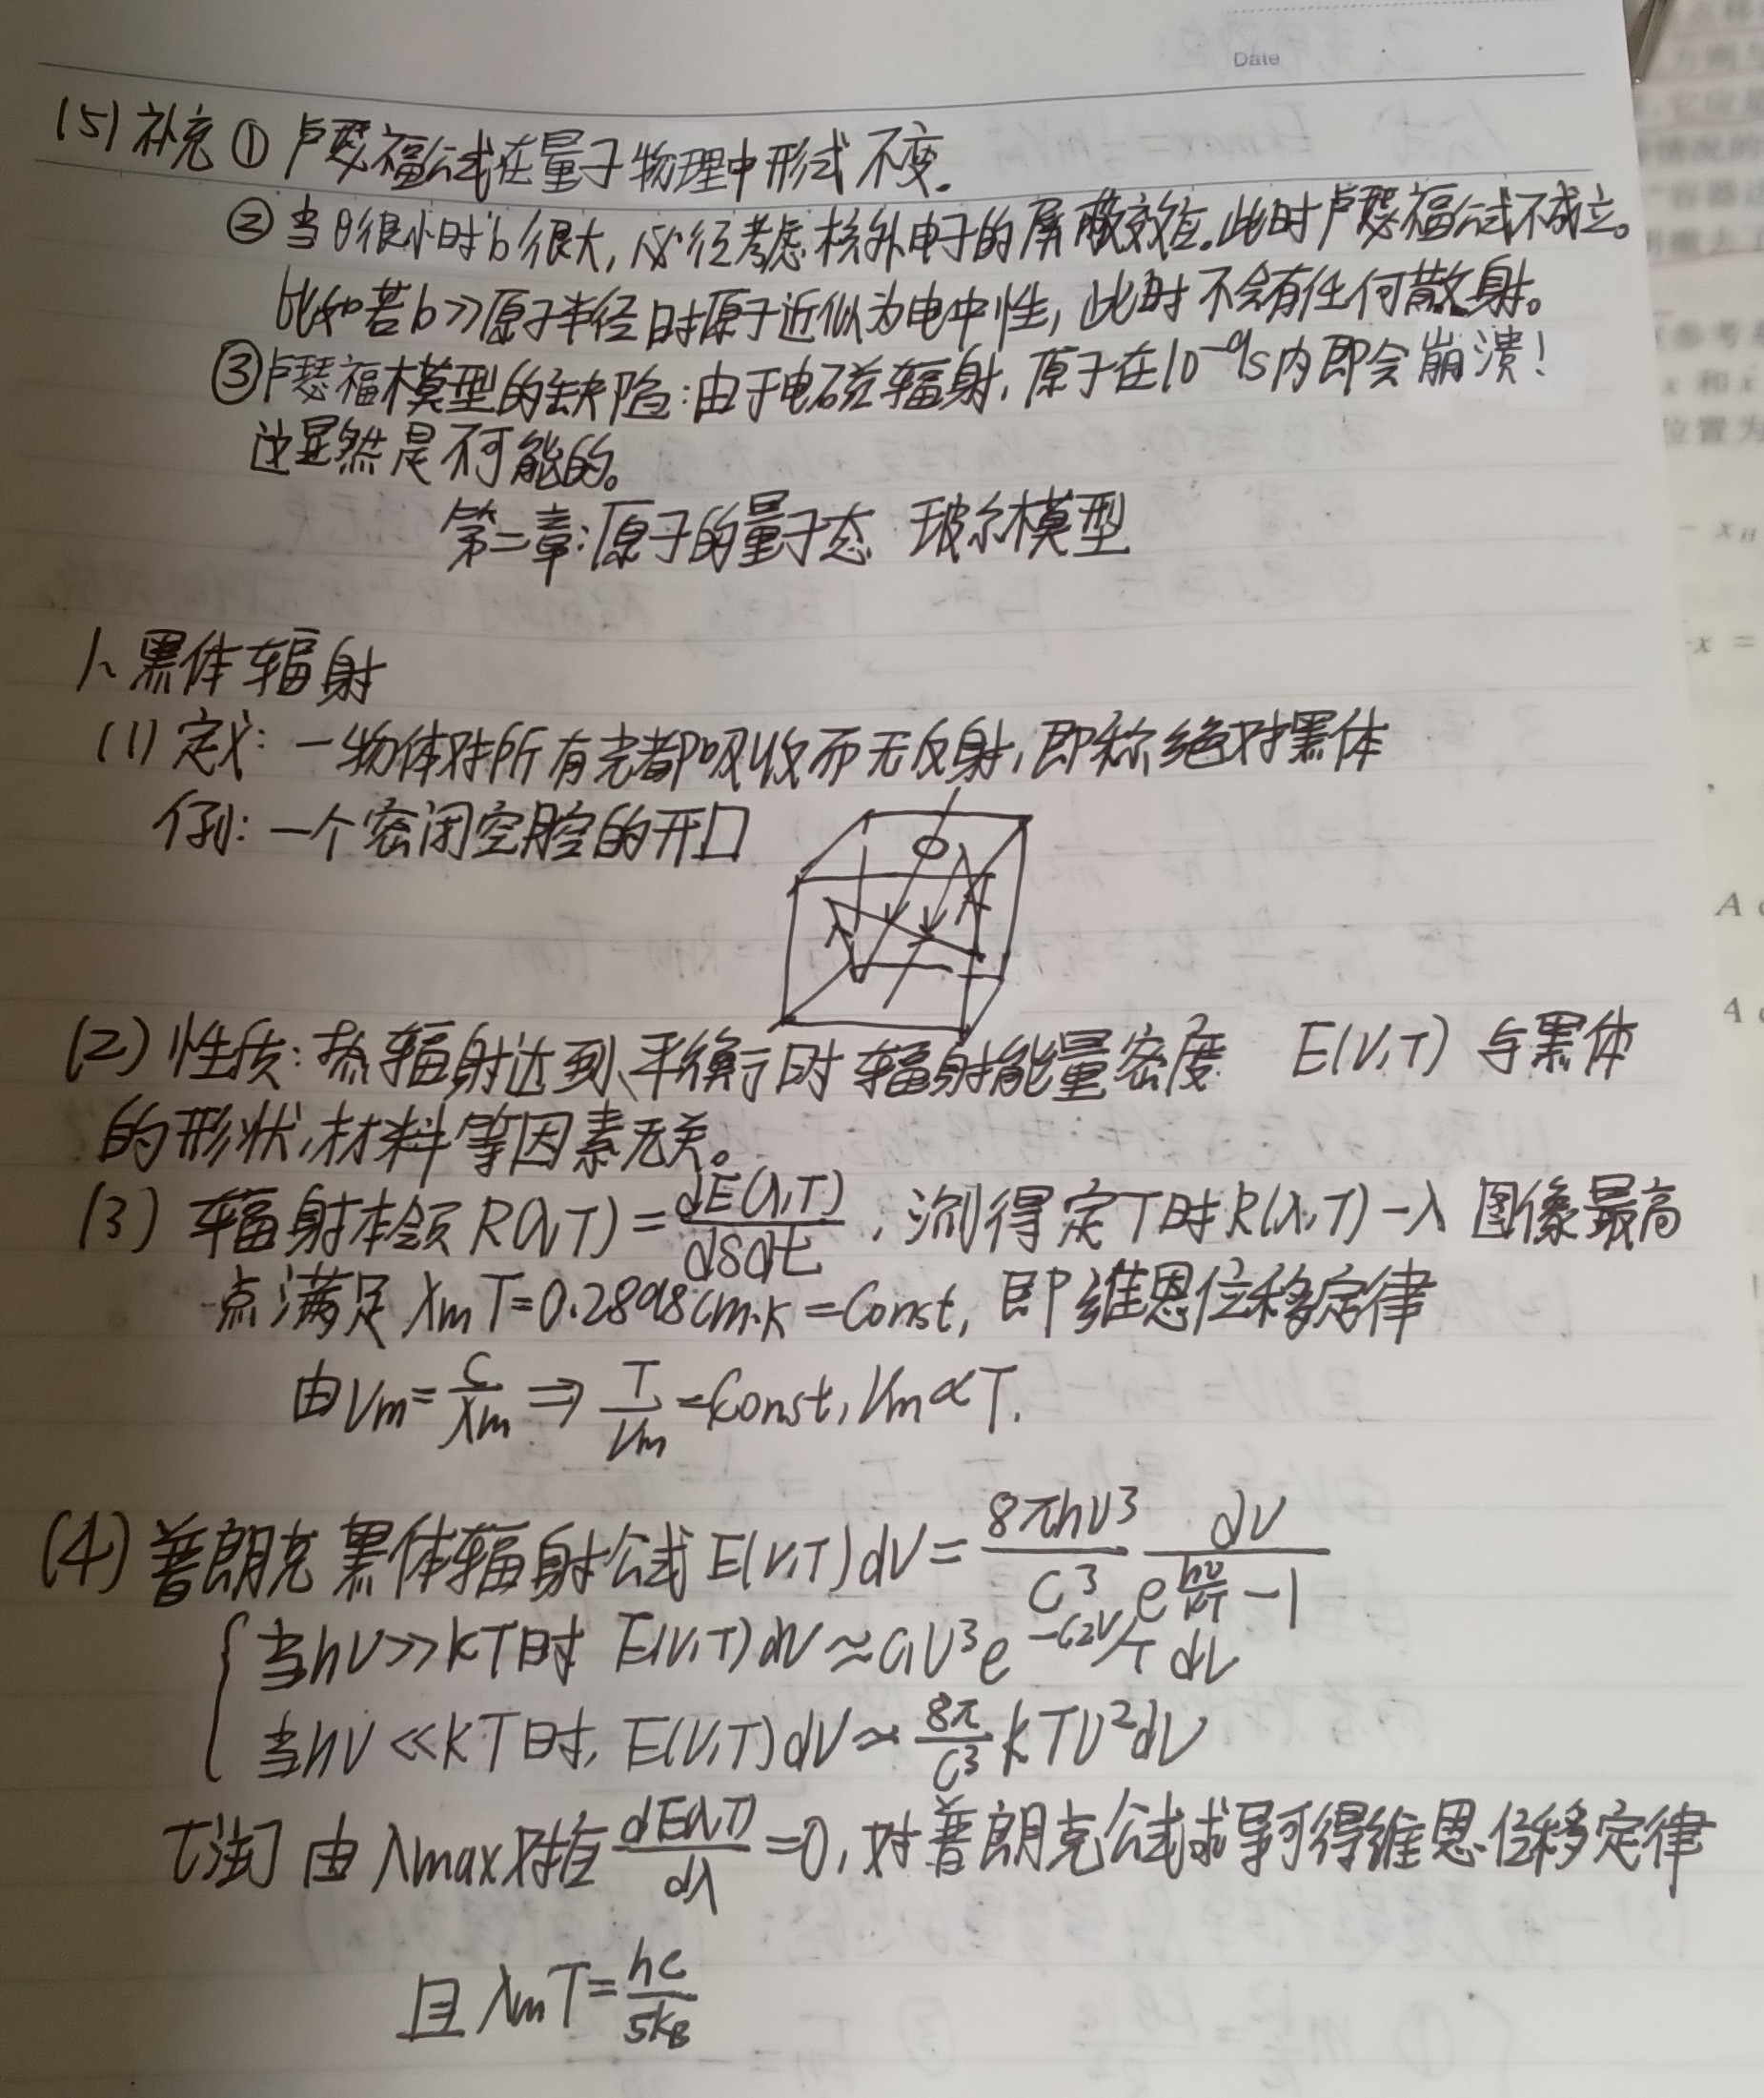 Date
(5) 补充 ① 卢瑟福公式在量子物理中形式不变.
② 当θ很小时b很大, 必径考虑核外电子的屏蔽效应. 此时卢瑟福公式不成立。
比如若b>>原子半径时原子近似为电中性, 此时不会有任何散射。
③卢瑟福模型的缺陷:由于电磁辐射, 原子在10⁻⁹s内即会崩溃!
这显然是不可能的。
第二章:原子的量子态 玻尔模型
1、黑体辐射
(1) 定义: 一物体对所有光都吸收而无反射, 即称绝对黑体
例: 一个密闭空腔的开口
(2) 性质: 热辐射达到平衡时辐射能量密度 E(ν,T) 与黑体
的形状、材料等因素无关。
(3) 辐射本领 R(λ,T) = dE(λ,T)/dsdt , 测得定T时R(λ,T)-λ 图像最高
点满足 λm T=0.2898cm·K=Const, 即维恩位移定律
由νm= c/λm ⇒ T/νm =Const, νm∝T.
(4) 普朗克黑体辐射公式 E(ν,T)dν= 8πhν³/C³ dν/(e^(hν/kT) -1)
当hν>>kT时 E(ν,T)dν≈C₁ν³e^(-C₂ν/T) dν
当hν<<kT时, E(ν,T)dν≈ 8π/C³ kTν²dν
[法] 由 λmax对应 dE(λ,T)/dλ =0, 对普朗克公式求导可得维恩位移定律
且 λmT= hc/5kB